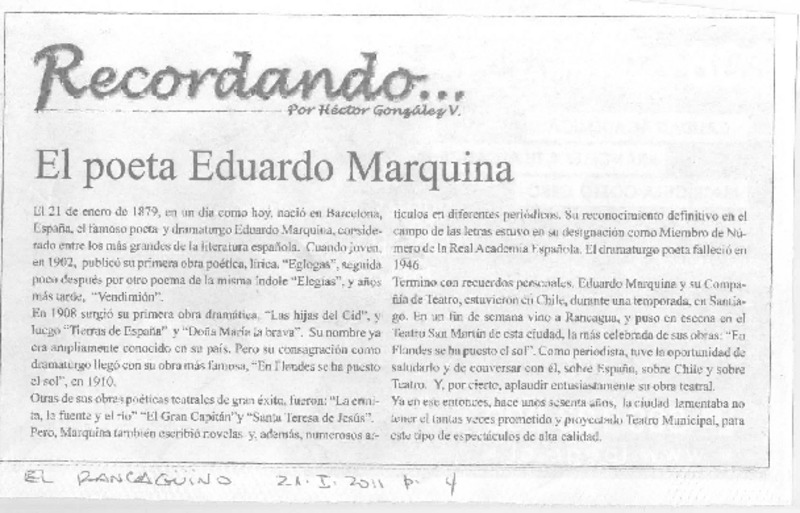 Recordando...
Por Héctor González V.
El poeta Eduardo Marquina
El 21 de enero de 1879, en un día como hoy, nació en Barcelona,
España, el famoso poeta y dramaturgo Eduardo Marquina, conside-
rado entre los más grandes de la literatura española. Cuando joven,
en 1902, publicó su primera obra poética, lírica. "Eglogas", seguida
poco después por otro poema de la misma índole "Elegías", y años
más tarde, "Vendimión".
En 1908 surgió su primera obra dramática, "Las hijas del Cid", y
luego "Tierras de España" y "Doña María la brava". Su nombre ya
era ampliamente conocido en su país. Pero su consagración como
dramaturgo llegó con su obra más famosa, "En Flandes se ha puesto
el sol", en 1910.
Otras de sus obras poéticas teatrales de gran éxito, fueron: "La ermi-
ta, la fuente y el río" "El Gran Capitán"y "Santa Teresa de Jesús".
Pero, Marquina también escribió novelas y, además, numerosos ar-
tículos en diferentes periódicos. Su reconocimiento definitivo en el
campo de las letras estuvo en su designación como Miembro de Nú-
mero de la Real Academia Española. El dramaturgo poeta falleció en
1946.
Termino con recuerdos personales. Eduardo Marquina y su Compa-
ñía de Teatro, estuvieron en Chile, durante una temporada, en Santia-
go. En un fin de semana vino a Rancagua, y puso en escena en el
Teatro San Martín de esta ciudad, la más celebrada de sus obras: "En
Flandes se ha puesto el sol". Como periodista, tuve la oportunidad de
saludarlo y de conversar con él, sobre España, sobre Chile y sobre
Teatro. Y, por cierto, aplaudir entusiastamente su obra teatral.
Ya en ese entonces, hace unos sesenta años, la ciudad lamentaba no
tener el tantas veces prometido y proyectado Teatro Municipal, para
este tipo de espectáculos de alta calidad.
EL RANCAGÜINO 21. I. 2011 p. 4